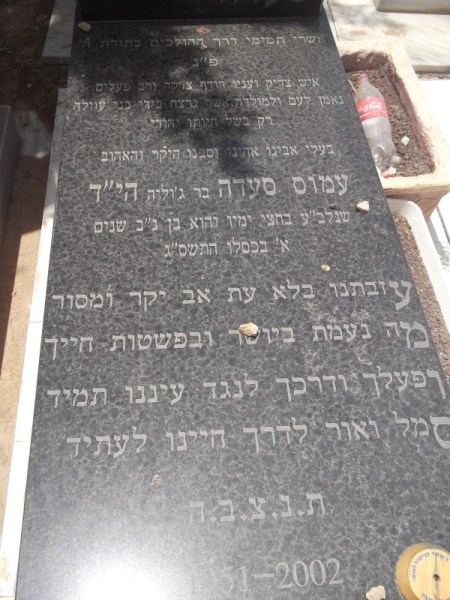 אשרי תמימי דרך ההולכים בתורת ה'
פ"נ
איש צדיק ועניו רודף צדקה ורב פעלים
נאמן לעם ולמולדת אשר נרצח בידי בני עוולה
רק בשל היותו יהודי
בעלי אבינו אחינו וסבנו היקר והאהוב
עמוס סעדה בר ג'וליה הי"ד
שנלב"ע בחצי ימיו והוא בן נ"ב שנים
א' בכסלו התשס"ג
עזבתנו בלא עת אב יקר ומסור
מה נעמת ביושר ובפשטות חייך
ופעלך ודרכך לנגד עיננו תמיד
סמל ואור לדרך חיינו לעתיד
ת.נ.צ.ב.ה
51-2002
Coca-Cola